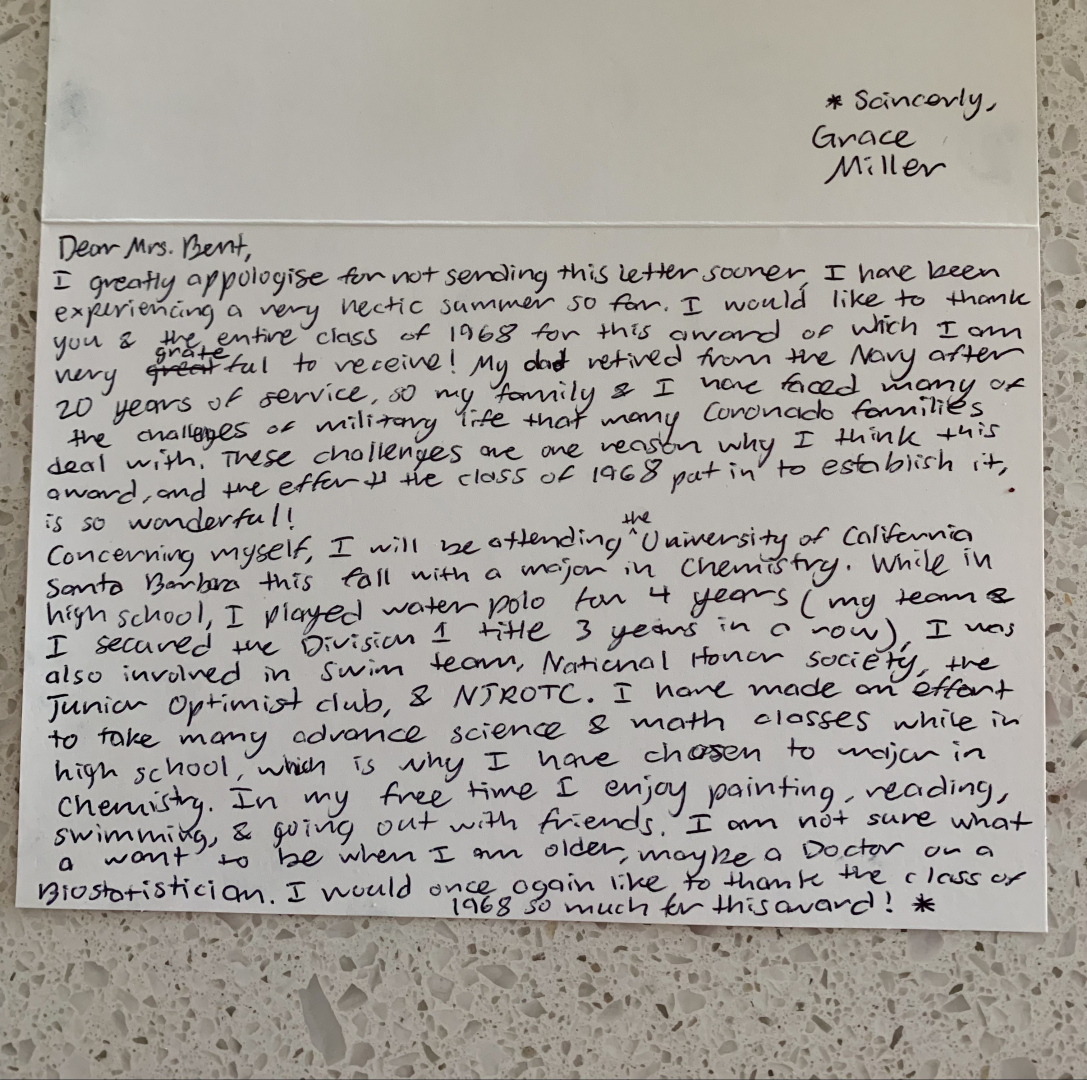 * Scincerly,
Grace
Miller
Dear Mrs. Bent,
I greatly appologise for not sending this letter sooner, I have been
experiencing a very hectic summer so far. I would like to thank
you & the entire class of 1968 for this award of which I am
very grateful to receive! My dad retired from the Navy after
20 years of service, so my family & I have faced many of
the challenges of military life that many Coronado families
deal with. These challenges are one reason why I think this
award, and the effort the class of 1968 put in to establish it,
is so wonderful!
Concerning myself, I will be attending the University of California
Santa Barbara this fall with a major in Chemistry. While in
high school, I played water polo for 4 years (my team &
I secured the Division 1 title 3 years in a row), I was
also involved in swim team, National Honor Society, the
Junior Optimist club, & NJROTC. I have made an effort
to take many advance science & math classes while in
high school, which is why I have chosen to major in
Chemistry. In my free time I enjoy painting, reading,
swimming, & going out with friends. I am not sure what
a want to be when I am older, maybe a Doctor or a
Biostatistician. I would once again like to thank the class of
1968 so much for this award! *